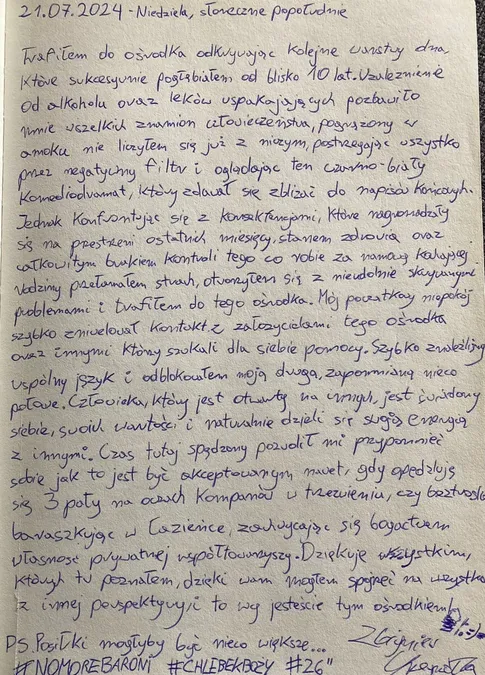 21.07.2024 - Niedziela, słoneczne popołudnie
Trafiłem do ośrodka odkrywając kolejne warstwy dna,
które sukcesywnie pogłębiałem od blisko 10 lat. Uzależnienie
od alkoholu oraz leków uspakajających pozbawiło
mnie wszelkich znamion człowieczeństwa, pogrążony w
amoku nie liczyłem się już z niczym, postrzegając wszystko
przez negatywny filtr i oglądając ten czarno-biały
komediodramat, który zdawał się zbliżać do napisów końcowych.
Jednak konfrontując się z konsekwencjami, które nagromadzały
się na przestrzeni ostatnich miesięcy, stanem zdrowia oraz
całkowitym brakiem kontroli tego co robię za namową kochającej
rodziny przełamałem strach, otworzyłem się z nieudolnie skrywanymi
problemami i trafiłem do tego ośrodka. Mój początkowy niepokój
szybko zniwelował kontakt z założycielami tego ośrodka
oraz innymi którzy szukali dla siebie pomocy. Szybko znaleźliśmy
wspólny język i odblokowałem moją drugą, zapomnianą nieco
połowę. Człowieka, który jest otwarty na innych, jest świadomy
siebie, swoich wartości i naturalnie dzieli się swoją energią
z innymi. Czas tutaj spędzony pozwolił mi przypomnieć
sobie jak to jest być akceptowanym nawet, gdy opędzluję
się 3 poły na oczach kompanów w trzeźwieniu, czy beztrosko
baraszkując w łazience, zachwycając się bogactwem
własnośc prywatnej współtowarzyszy. Dziękuję wszystkim,
których tu poznałem, dzięki wam mogłem spojrzeć na wszystko
z innej perspektywy, i to wy jesteście tym ośrodkiem
P.S. Posiłki mogłyby być nieco większe... Zbigniew
#NOMOREBARONI #CHLEBEKBOŻY #26"